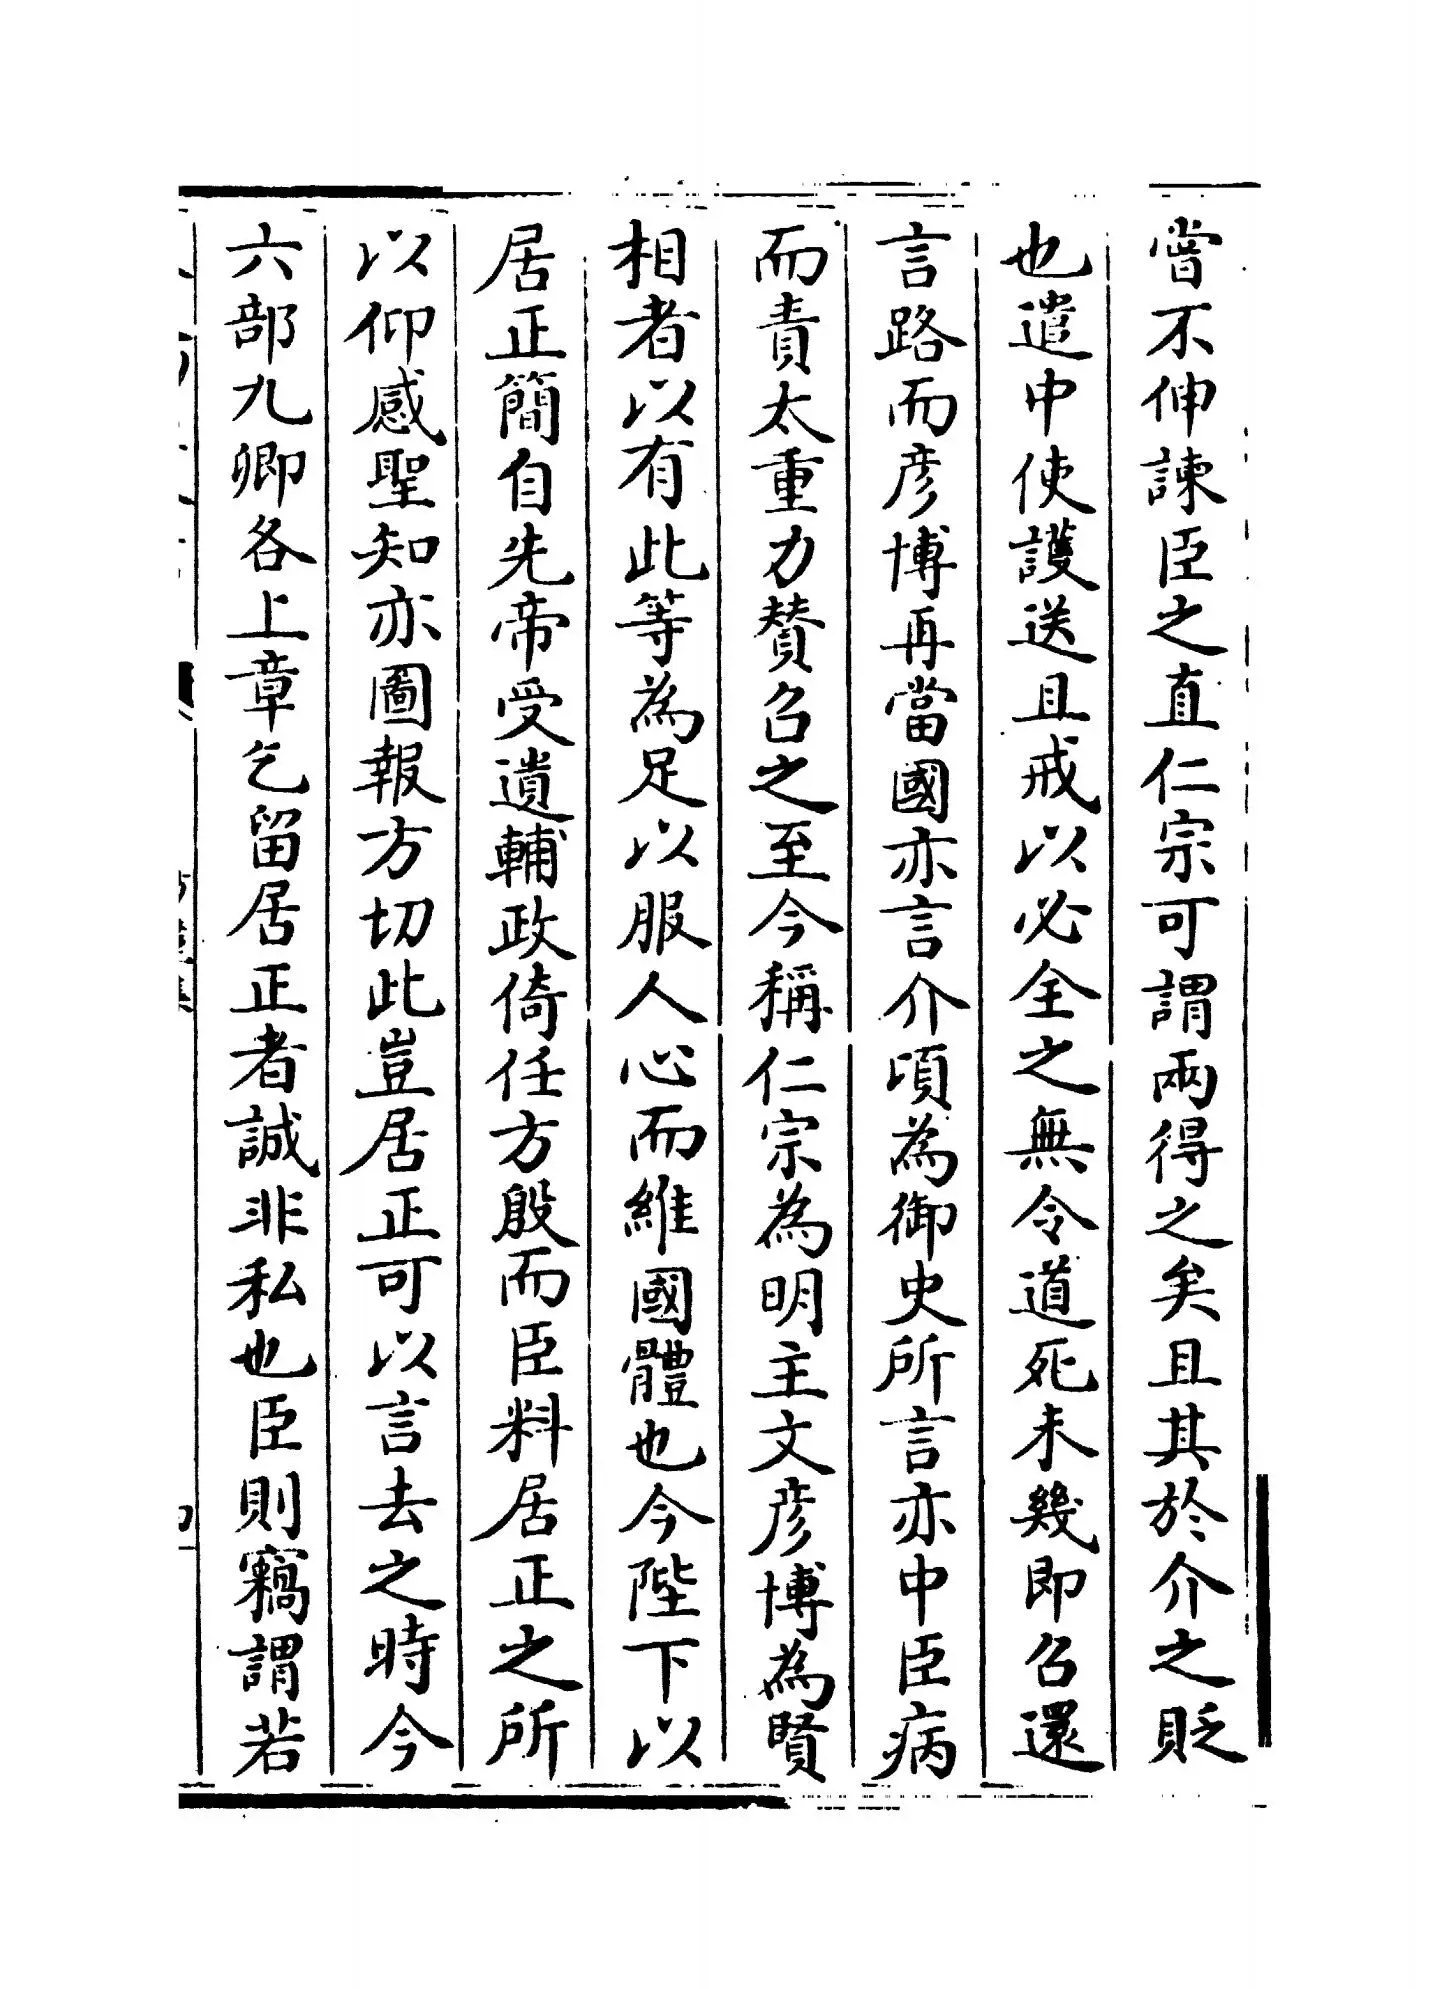 嘗不伸諫臣之直仁宗可謂兩得之矣且其於介之貶
也遣中使護送且戒以必全之無令道死未幾即召還
言路而彦博再當國亦言介頃為御史所言亦中臣病
而責太重力賛召之至今稱仁宗為明主文彦博為賢
相者以有此等為足以服人心而維國體也今陛下以
居正簡自先帝受遺輔政倚任方殷而臣料居正之所
以仰感聖知亦圖報方切此豈居正可以言去之時今
六部九卿各上章乞留居正者誠非私也臣則竊謂若